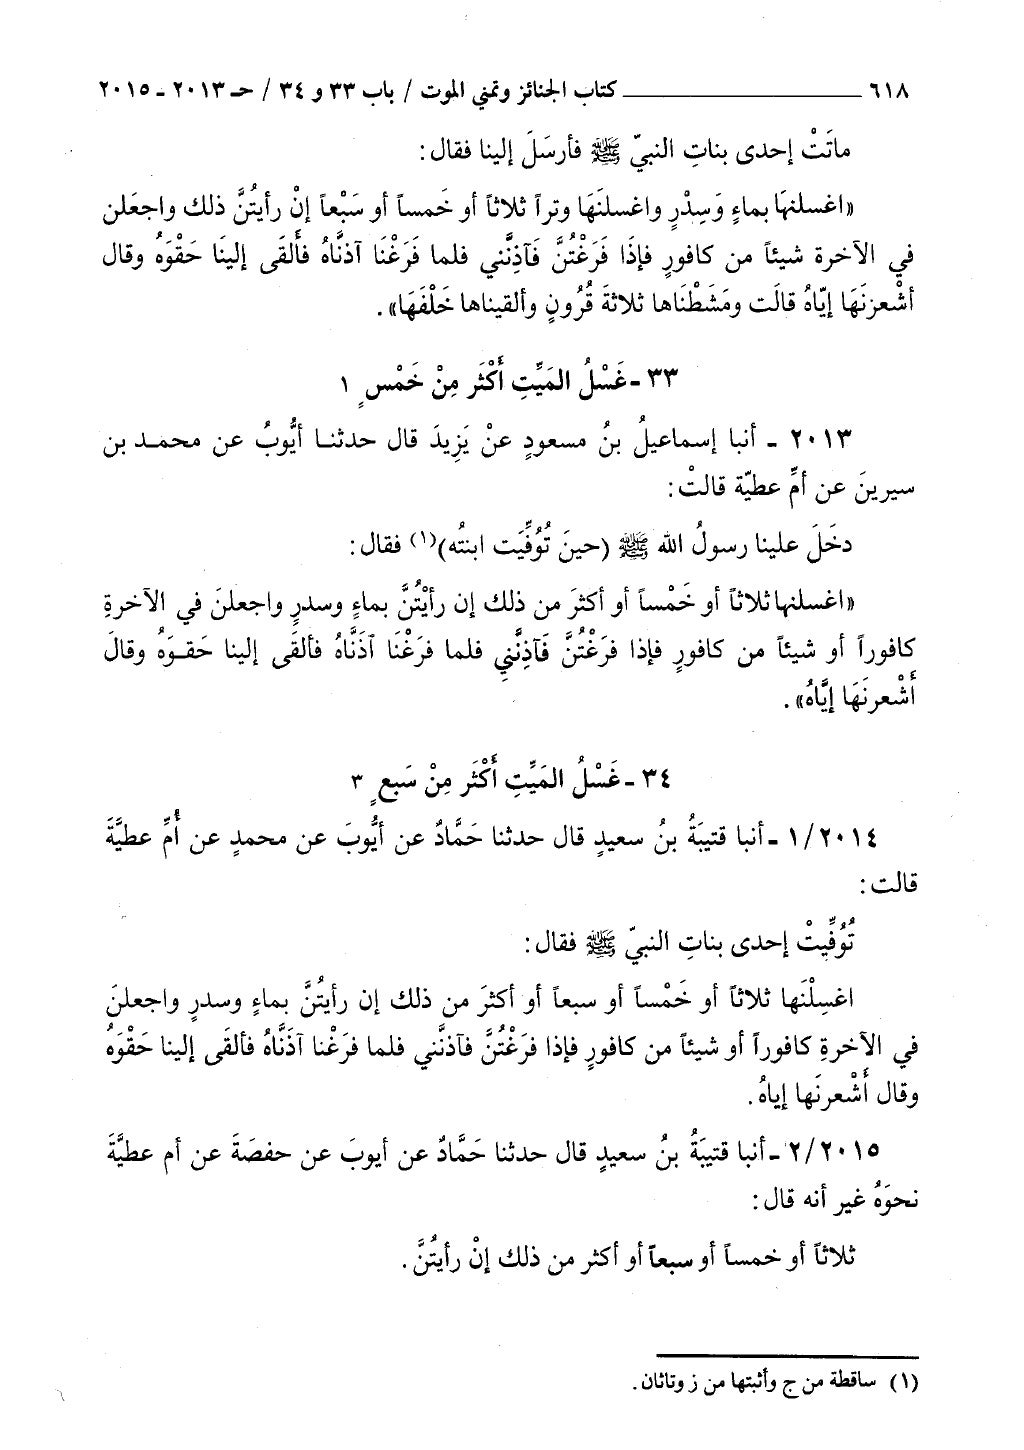 ٦١٨ ــــــــــــــــــــــــ كتاب الجنائز وتمني الموت / باب ٣٣ و ٣٤ / حـ ٢٠١٣ ـ ٢٠١٥
ماتَتْ إحدى بناتِ النبيّ ﷺ فأرسَلَ إلينا فقال:
«اغسلنهَا بماءٍ وَسِدْرٍ واغسلنَهَا وتراً ثلاثاً أو خَمساً أو سَبْعاً إنْ رأيتُنَّ ذلك واجعَلن
في الآخرة شيئاً من كافورٍ فإذَا فَرَغْتُنَّ فَآذِنَّني فلما فَرَغْنَا آذنَّاهُ فأَلقَى إلينَا حَقْوَهُ وقال
أشْعرنَهَا إيّاهُ قالَت ومَشَطْنَاها ثلاثةَ قُرُونٍ وألقيناها خَلْفَهَا».
٣٣ - غَسْلُ المَيِّتِ أَكْثَر مِنْ خَمْسٍ ١
٢٠١٣ ـ أنبا إسماعيلُ بنُ مسعودٍ عنْ يَزِيدَ قال حدثنا أيُّوبُ عن محمد بن
سيرينَ عن أمِّ عطيّة قالتْ:
دخَلَ علينا رسولُ الله ﷺ (حينَ تُوُفِّيَت ابنتُه)(١) فقال:
«اغسلنها ثلاثاً أو خَمْساً أو أكثرَ من ذلك إن رأيْتُنَّ بماءٍ وسدرٍ واجعلنَ في الآخرةِ
كافوراً أو شيئاً من كافورٍ فإذا فرَغْتُنَّ فَآذِنَّنِي فلما فرَغْنَا آذَنَّاهُ فألقَى إلينا حَقوَهُ وقالَ
أَشْعرنَهَا إيَّاهُ».
٣٤ - غَسْلُ المَيِّتِ أَكْثَر مِنْ سَبعٍ ٣
١/٢٠١٤ ـ أنبا قتيبَةُ بنُ سعيدٍ قال حدثنا حَمَّادٌ عن أيُّوبَ عن محمدٍ عن أُمِّ عطيَّةَ
قالت:
تُوُفِّيتْ إحدى بناتِ النبيّ ﷺ فقال:
اغسِلْنَها ثلاثاً أو خَمْساً أو سبعاً أو أكثرَ من ذلك إن رأيتُنَّ بماءٍ وسدرٍ واجعلنَ
في الآخرةِ كافوراً أو شيئاً من كافورٍ فإذا فرَغْتُنَّ فآذنَّني فلما فرَغْنا آذَنَّاهُ فألقَى إلينا حَقْوَهُ
وقال أَشْعرنَها إياهُ.
٢/٢٠١٥ ـ أنبا قتيبَةُ بنُ سعيدٍ قال حدثنا حَمَّادٌ عن أيوبَ عن حفصَةَ عن أم عطيَّةَ
نحوَهُ غير أنه قال:
ثلاثاً أو خمساً أو سبعاً أو أكثر من ذلك إنْ رأيتُنَّ.
(١) ساقطة من ج وأثبتها من ز وتاثان.